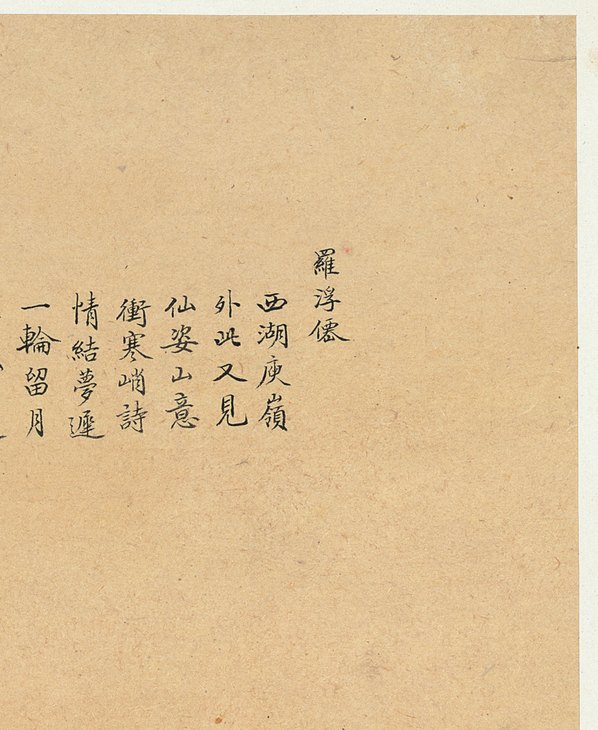 羅浮僊
西湖庾嶺
外此又見
仙姿山意
衝寒峭詩
情結夢遲
一輪留月